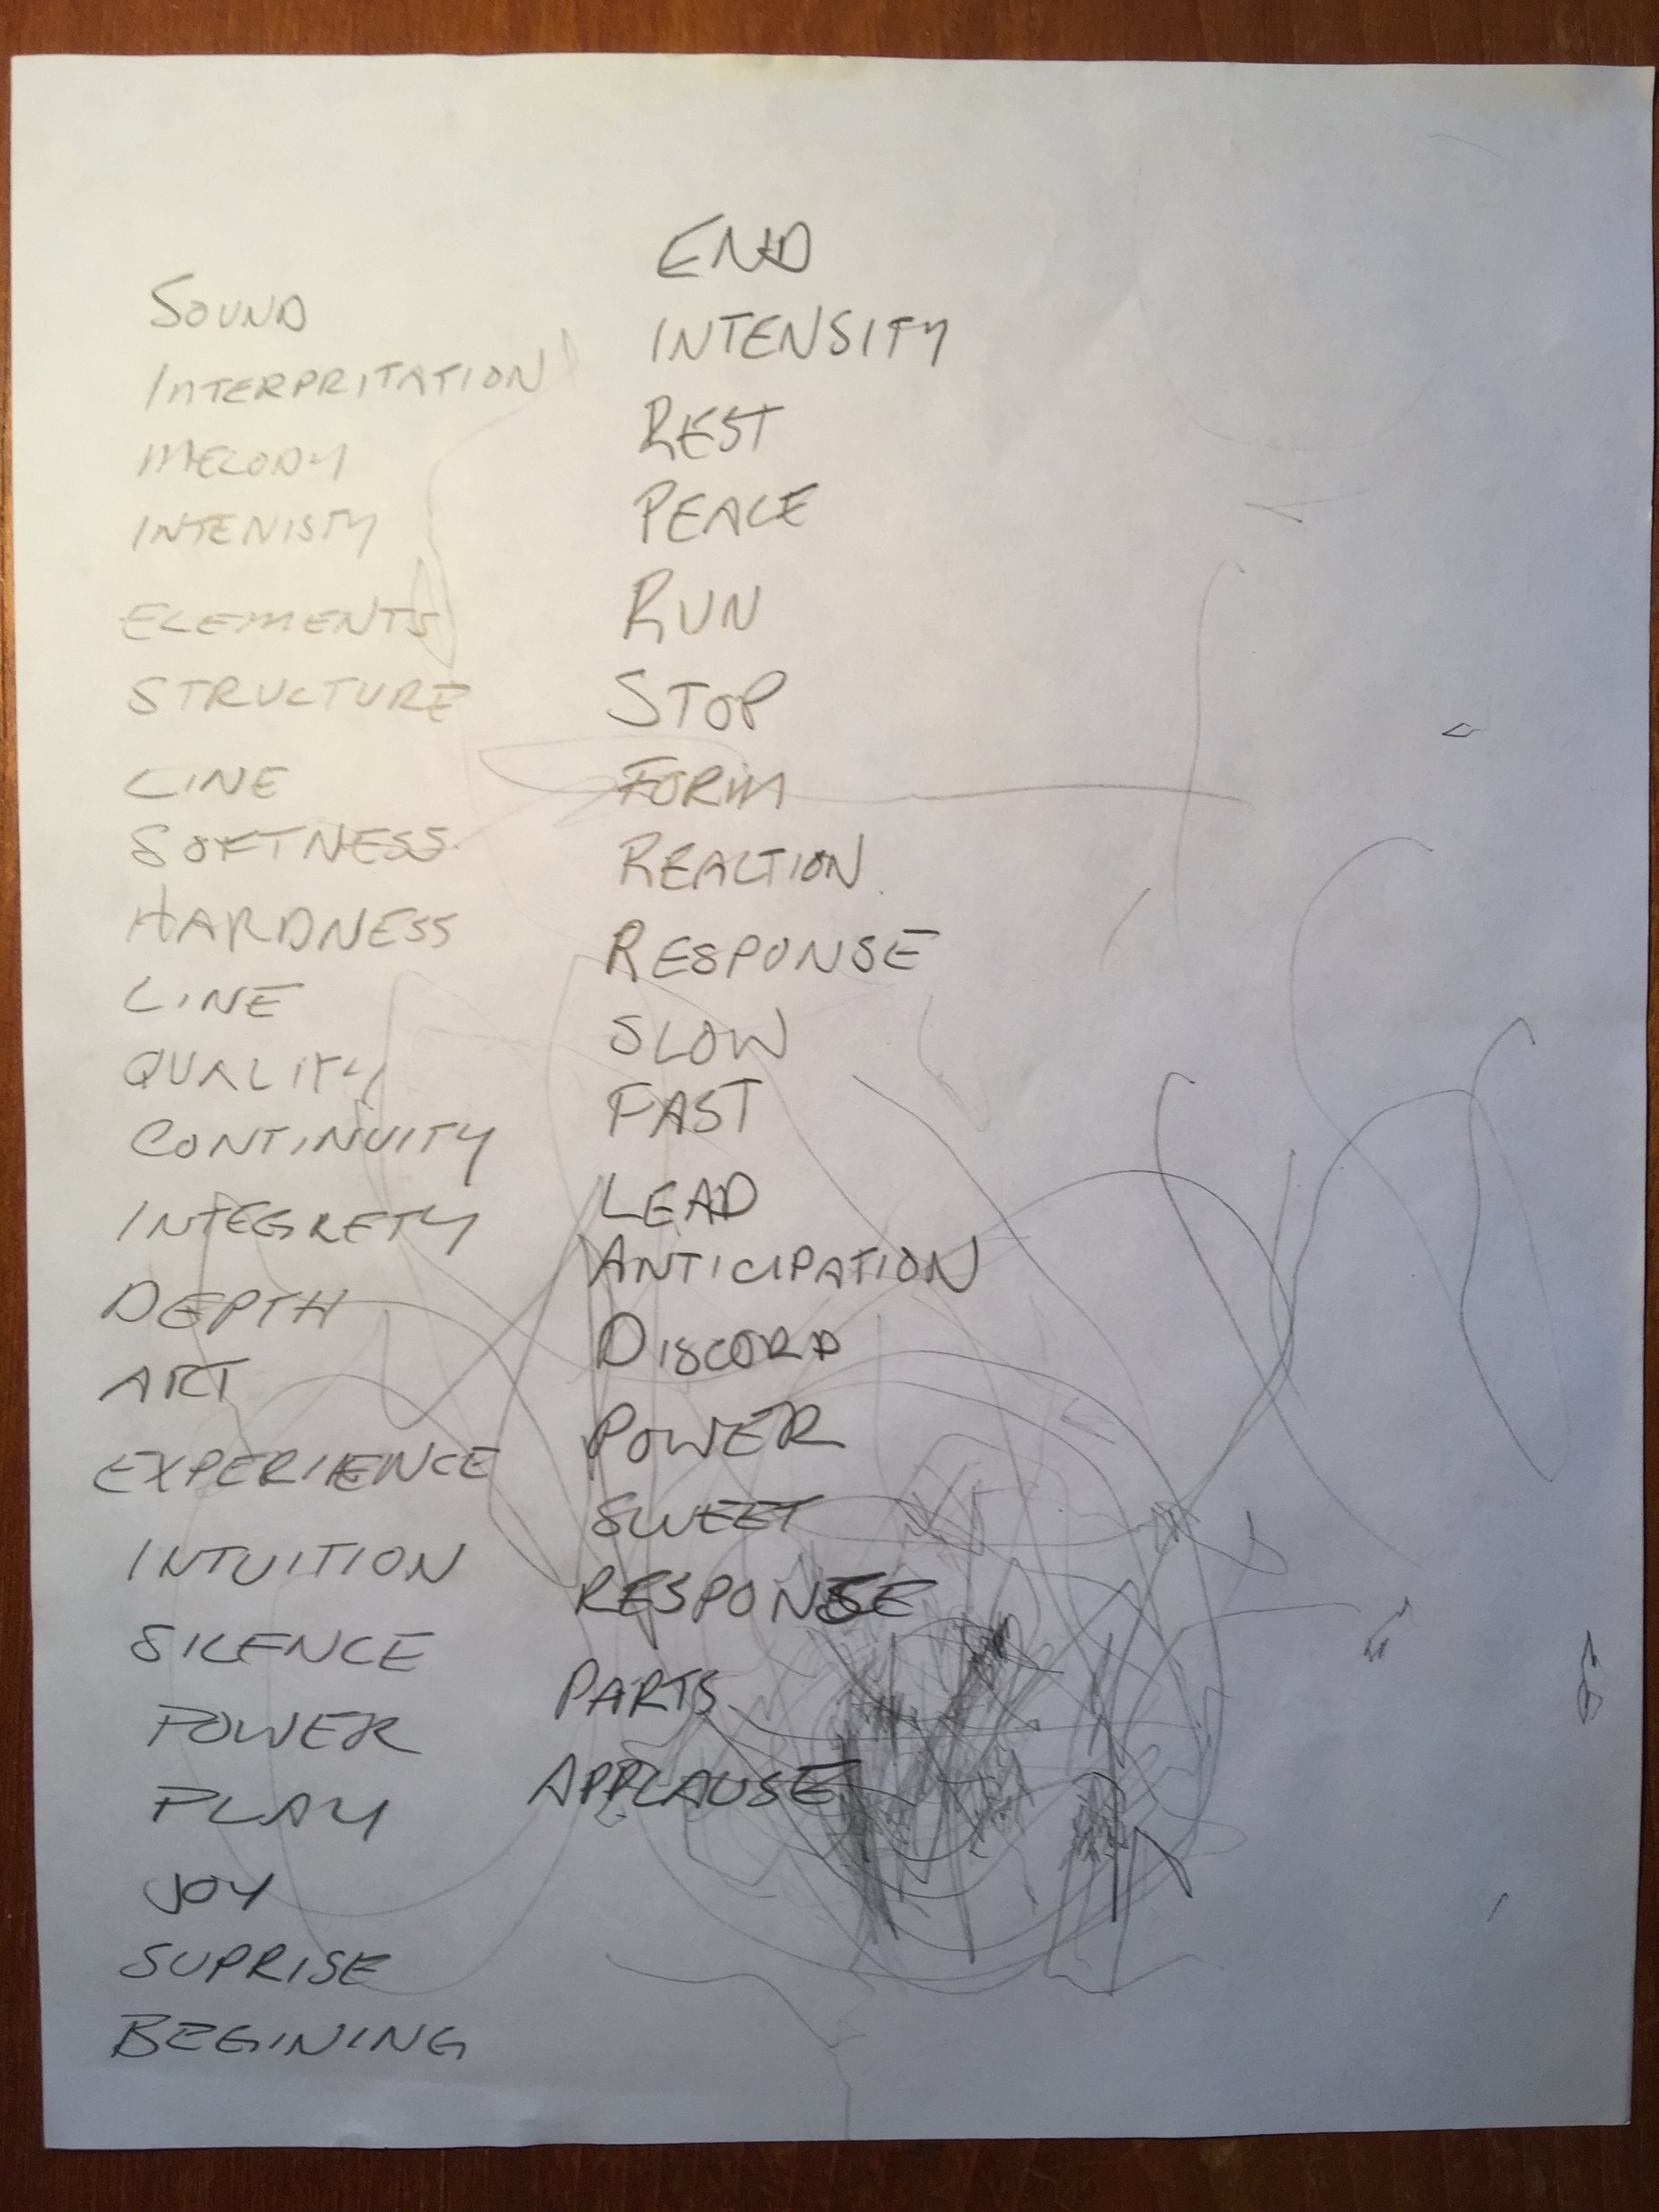 SOUND
INTERPRITATION
MELODY
INTENISTY
ELEMENTS
STRUCTURE
LINE
SOFTNESS
HARDNESS
LINE
QUALITY
CONTINUITY
INTEGRETY
DEPTH
ART
EXPERIENCE
INTUITION
SILENCE
POWER
PLAY
JOY
SUPRISE
BEGINING
END
INTENSITY
REST
PEACE
RUN
STOP
FORM
REACTION
RESPONSE
SLOW
FAST
LEAD
ANTICIPATION
DISCORD
POWER
SWEET
RESPONSE
PARTS
APPLAUSE